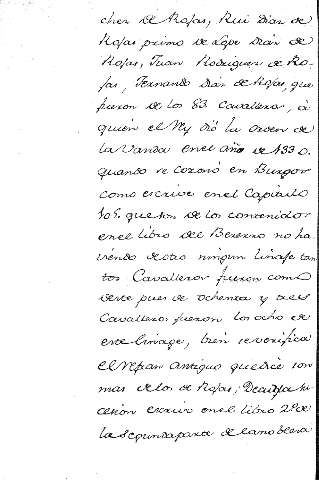 chez de Rojas, Rui Dias de
Rojas primo de Lope Dias de
Rojas, Juan Rodriguez de Ro-
jas, Fernando Dias de Rojas, que
fueron de los 83 Cavalleros, á
quien el Rey dió la orden de
la Vanda en el año de 1330.
quando se coronó en Burgos
como escrive en el Capitulo
105. que son de los contenidos
en el libro del Bezerro no ha
viendo de otro ningun linaje tan
tos Cavalleros fueron como
deste pues de ochenta y tres
Cavalleros fueron los ocho de
este linage, bien se verifica
el Refran antiguo que dice son
mas de los de Rojas; De cuya su
cesion escrivi en el libro 2º de
la segunda parte de la nobleza